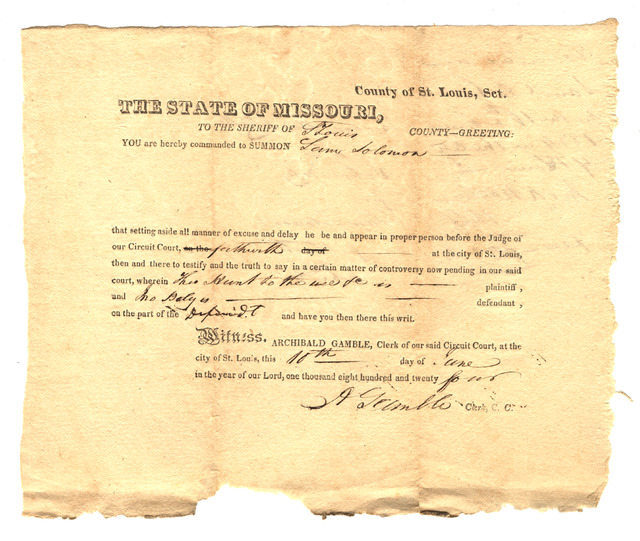 County of St. Louis, Sct.
THE STATE OF MISSOURI,
TO THE SHERIFF OF St Louis COUNTY—GREETING:
YOU are hereby commanded to SUMMON Sam Solomon
that setting aside all manner of excuse and delay he be and appear in proper person before the Judge of
our Circuit Court, on the forthwith day of at the city of St. Louis,
then and there to testify and the truth to say in a certain matter of controversy now pending in our said
court, wherein Theo Hunt to the use &c is plaintiff,
and is defendant,
on the part of the Defend.t and have you then there this writ.
Witness. ARCHIBALD GAMBLE, Clerk of our said Circuit Court, at the
city of St. Louis, this 10th day of June
in the year of our Lord, one thousand eight hundred and twenty four
A Gamble Clerk, C. C.